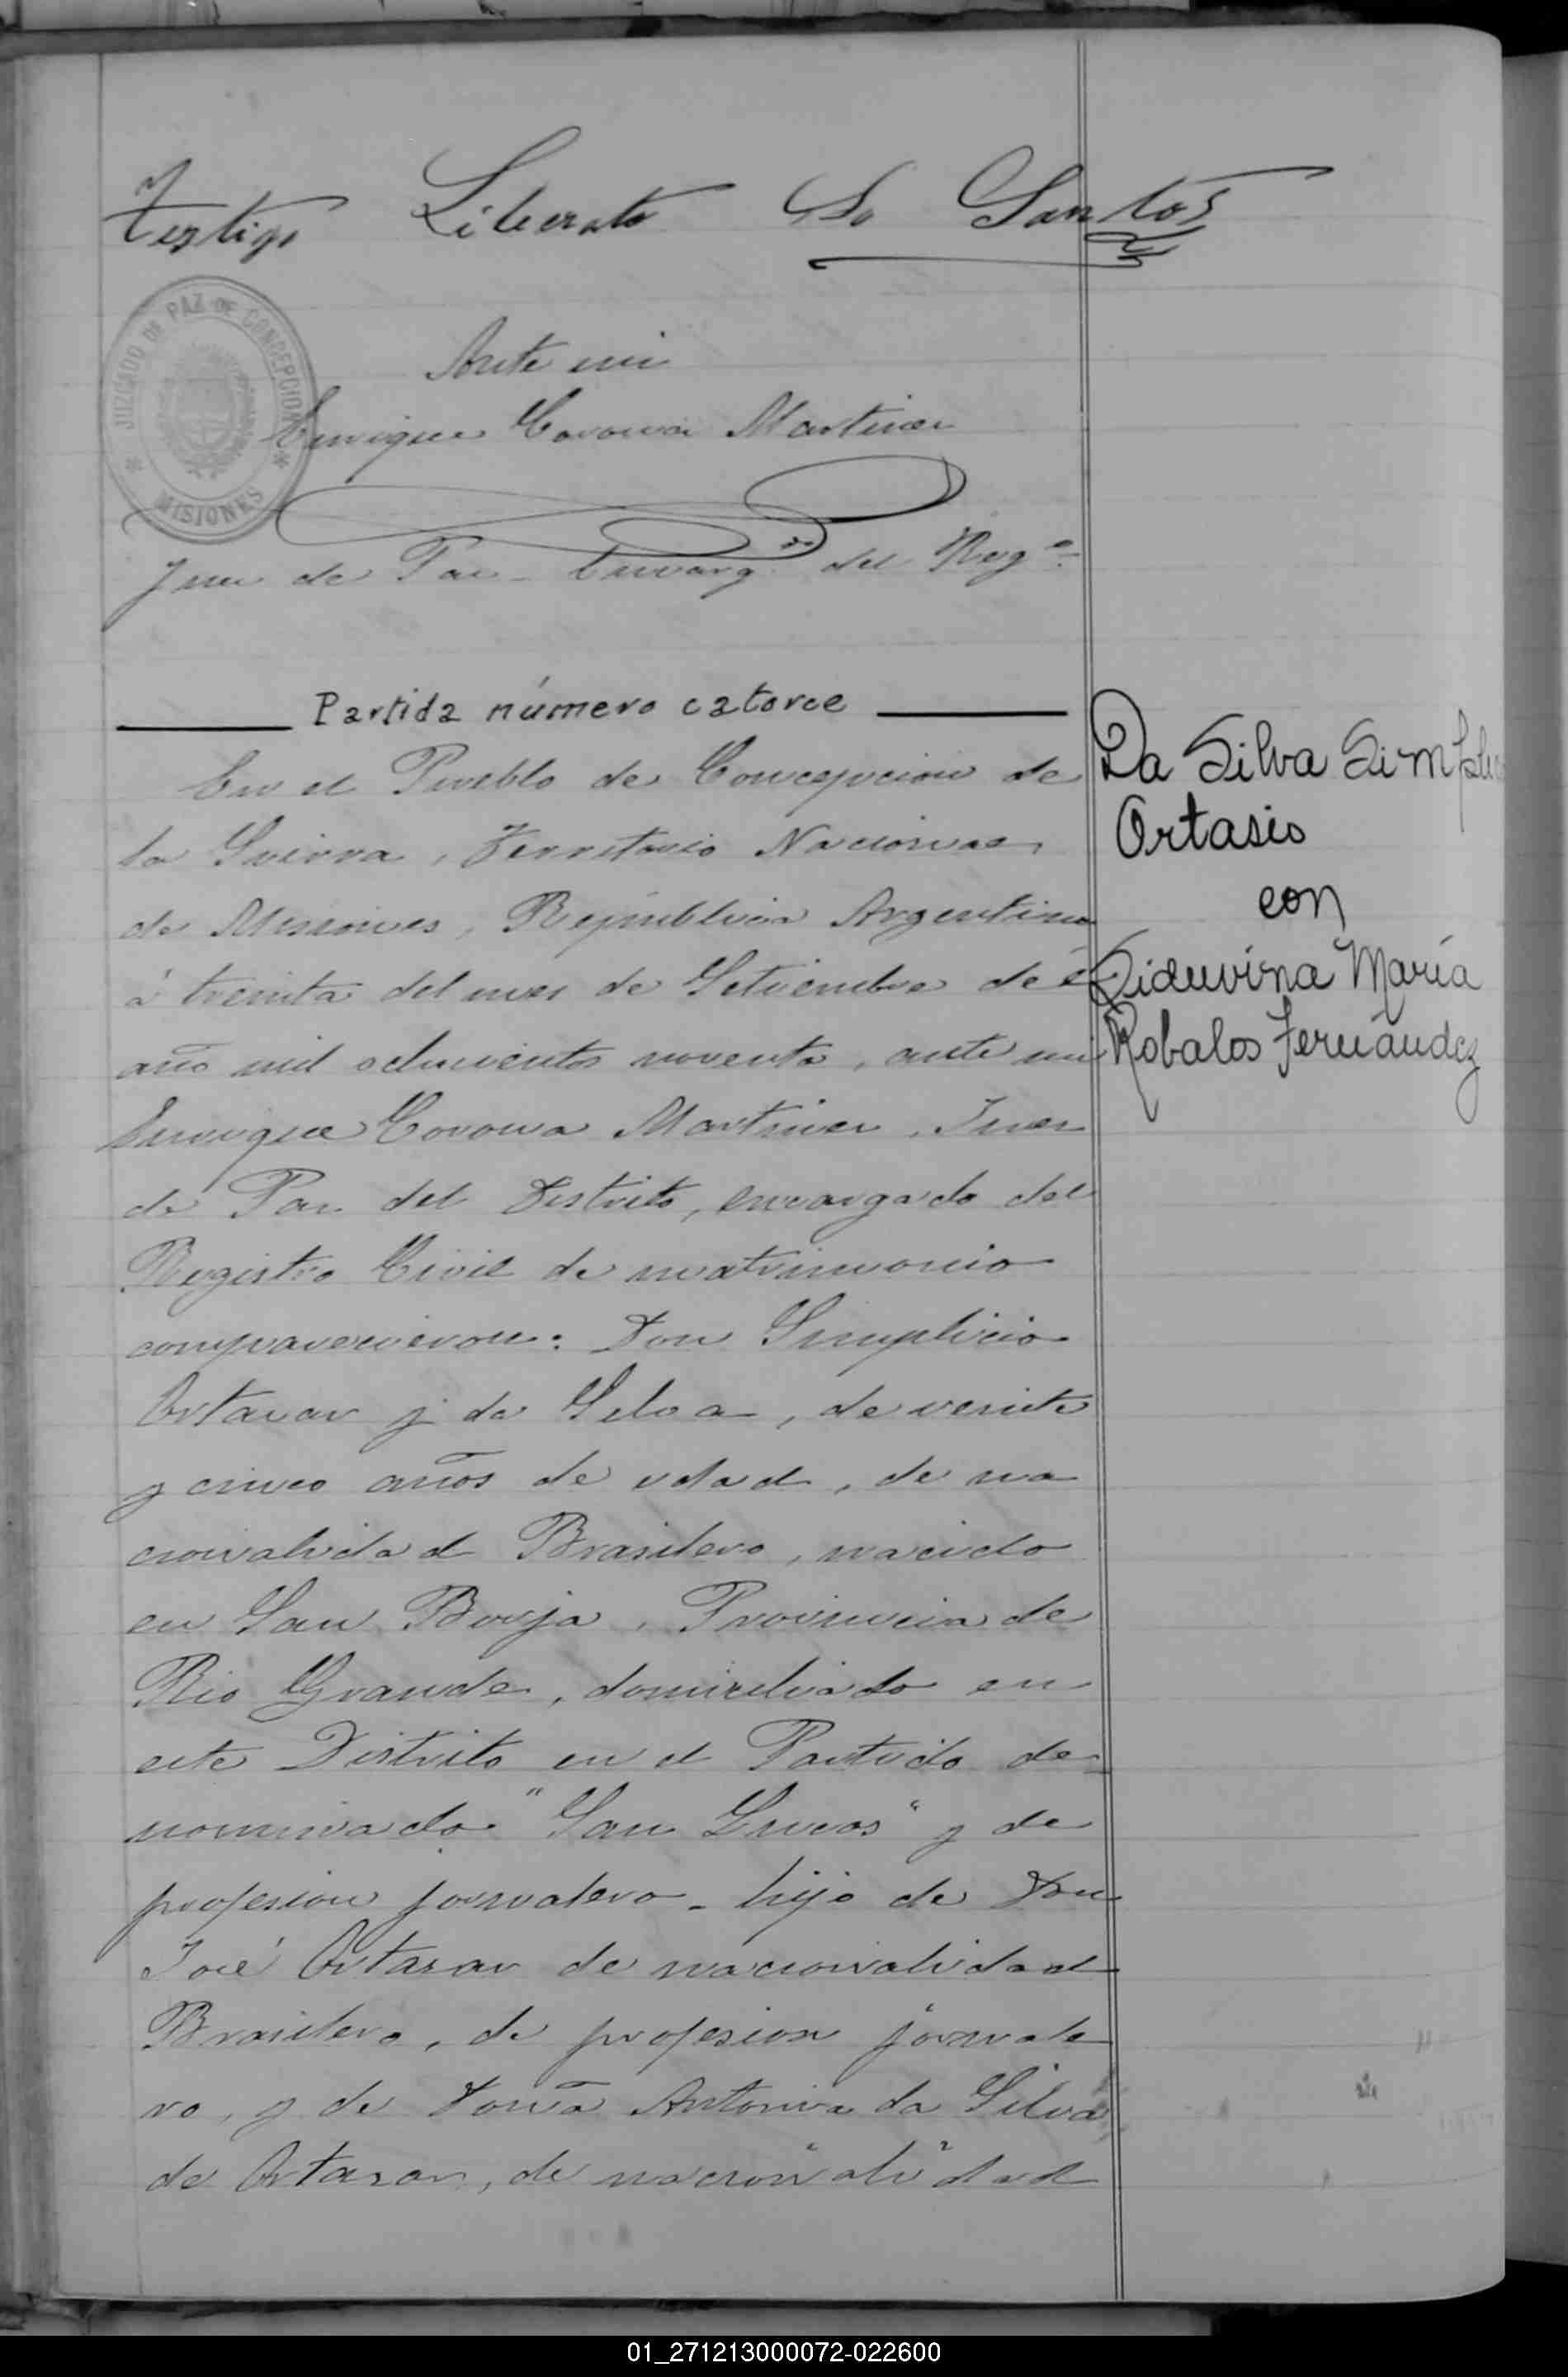 Testigo Liberato Do Santos
JUZGADO DE PAZ DE CONCEPCION
* MISIONES *
Ante mi
Enrique Corona Martinez
Juez de Paz - Encarg.do del Reg.o
Partida número catorce
En el Pueblo de Concepcion de
la Sierra, Territorio Nacional
de Misiones, República Argentina
á treinta del mes de Setiembre del
año mil ochocientos noventa, ante mi
Enrique Corona Martinez, Juez
de Paz del Distrito, encargado del
Registro Civil de matrimonio
comparecieron: Don Simplicio
Ortazar y da Silva, de veinte
y cinco años de edad, de na
cionalidad Brasilero, nacido
en San Borja, Provincia de
Rio Grande, domiciliado en
este Distrito en el Partido de-
nominado "San Lucas" y de
profesion jornalero - hijo de Don
José Ortazar de nacionalidad
Brasilero, de profesion jornale
ro, y de Doña Antonia da Silva
de Ortazar, de nacionalidad
Da Silva
Ortasio
con
Siduvina María
Robalos Fernández
01_271213000072-022600